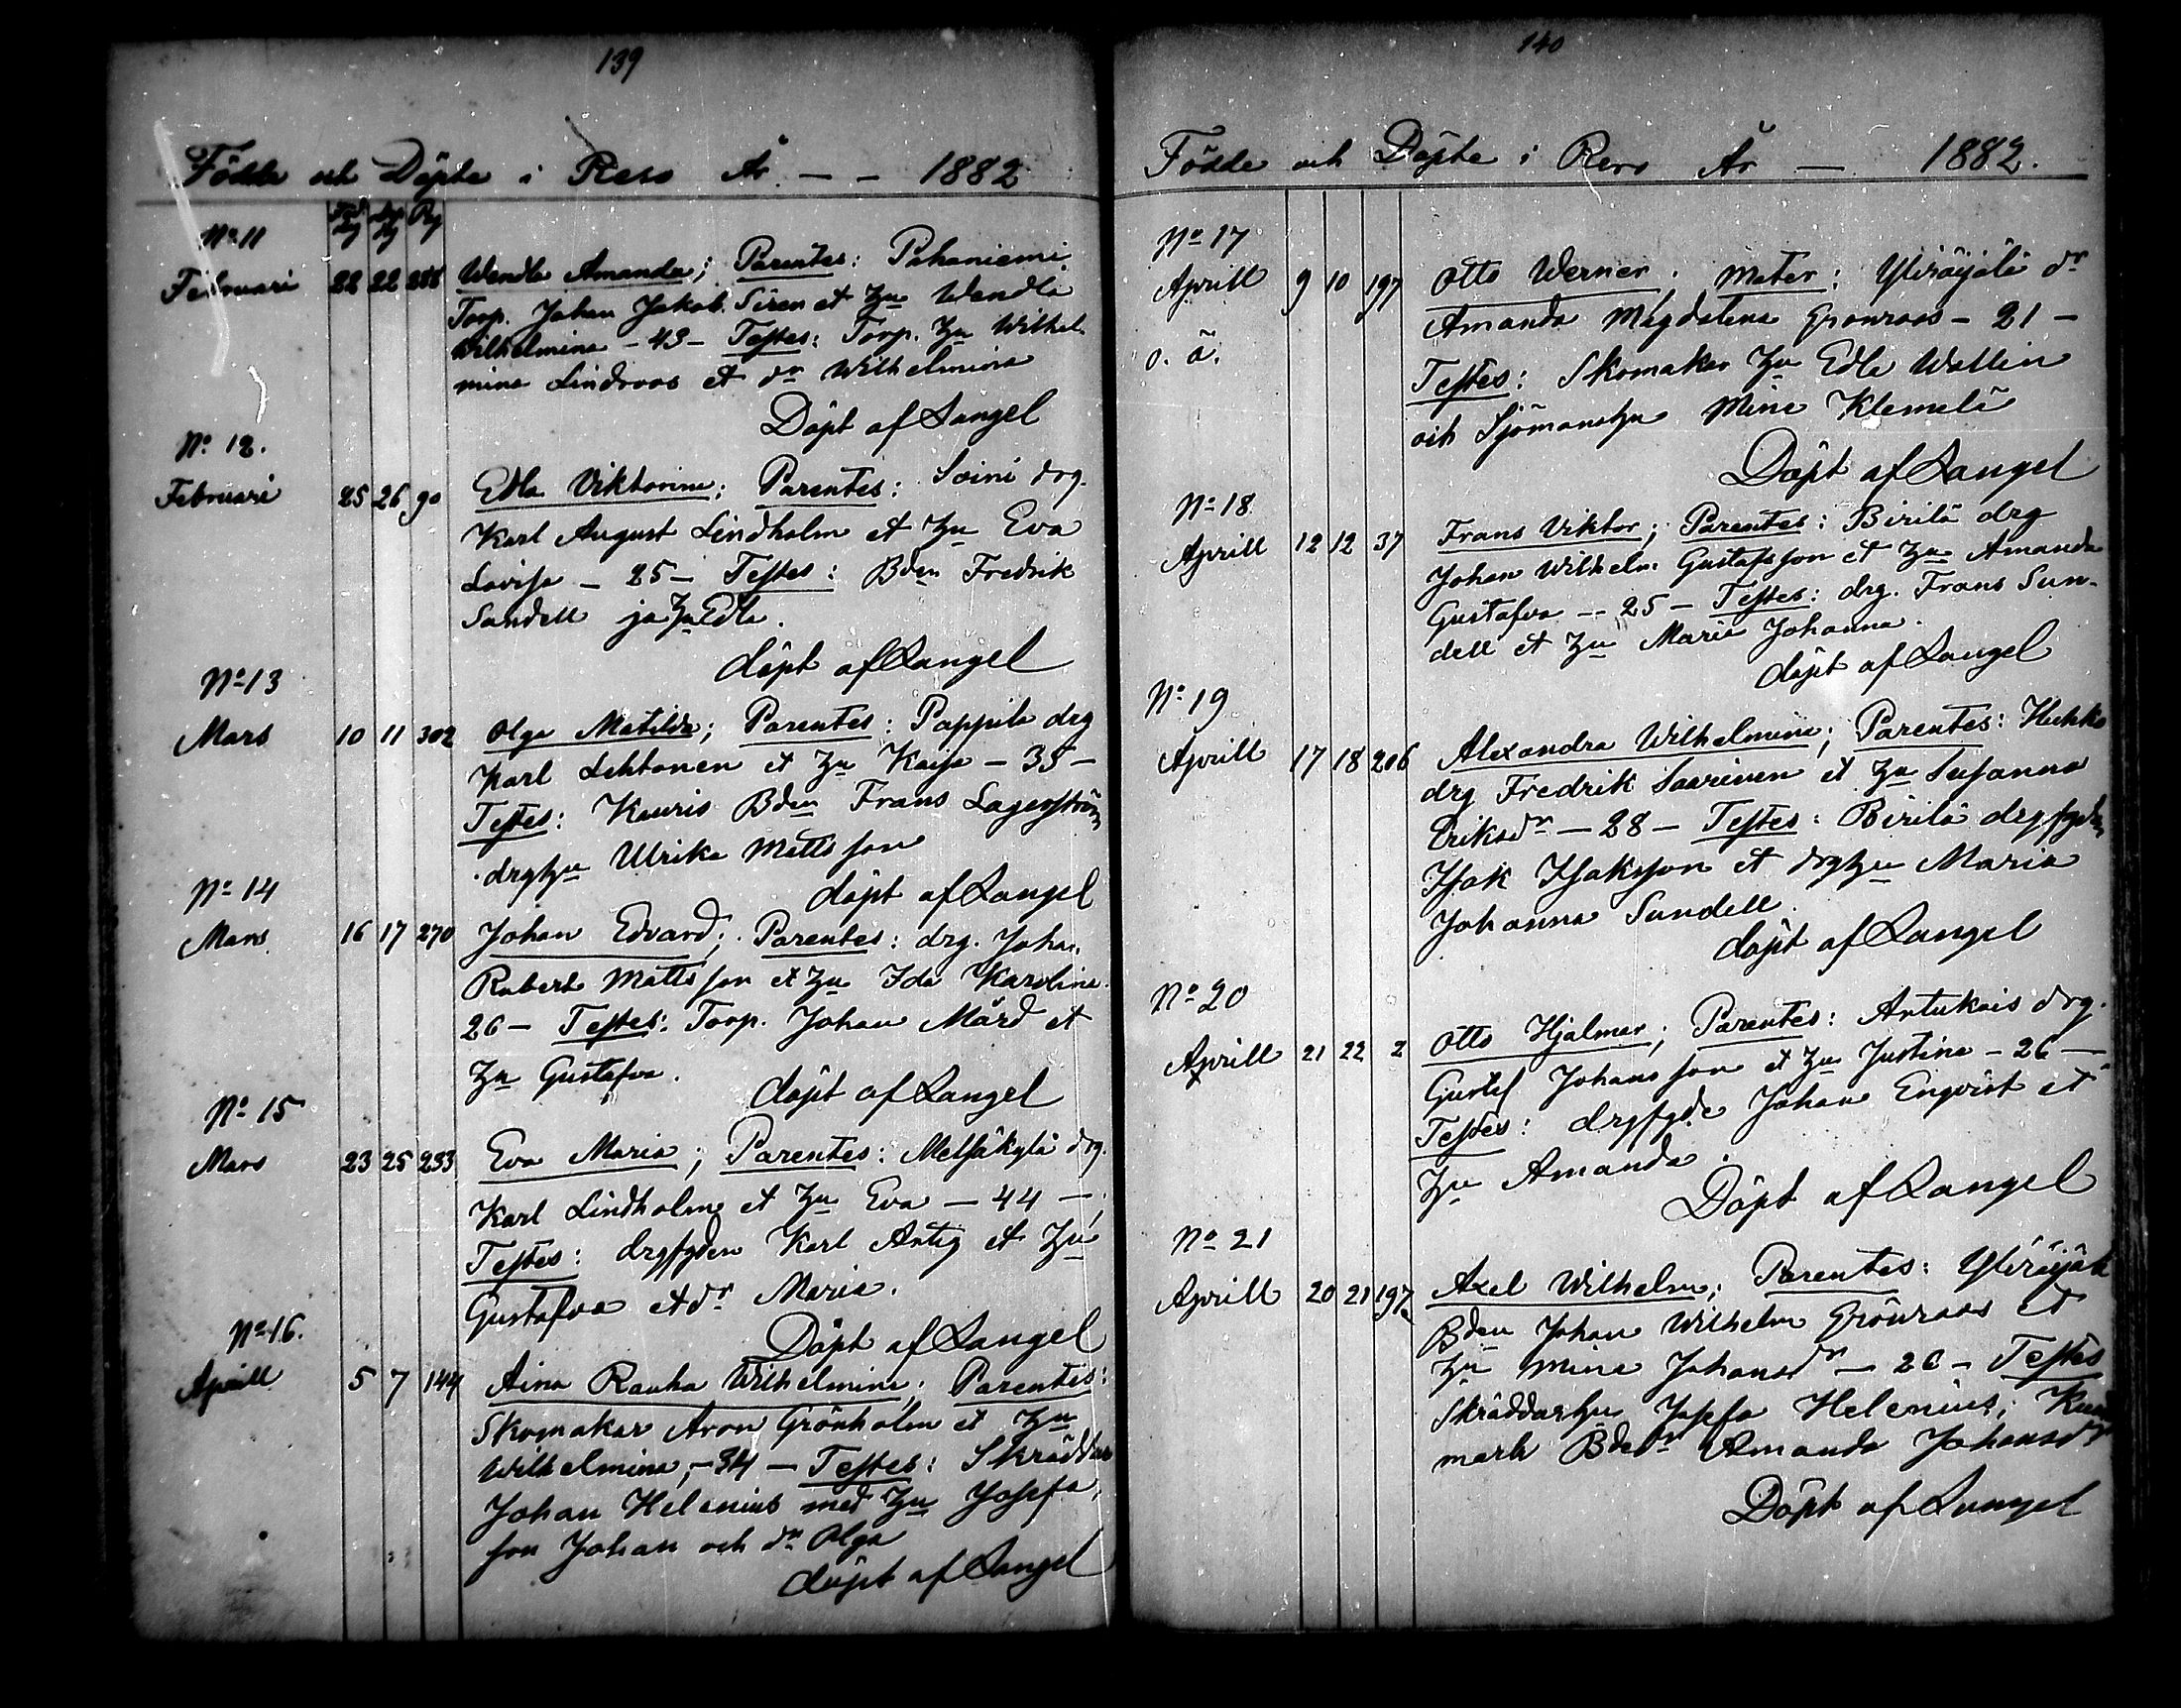 139
Födde och Döpte i Reso År — — 1882
Föd. dag Döp. dag Pag
No 11
Februari 22 22 286 Wendla Amanda; Parentes: Pahaniemi
Torp. Johan Jakob Siren et hu Wendla
Wilhelmina - 43 - Testes: Torp. hu Wilhel-
mina Lindroos et dr Wilhelmina
Döpt af Langel
No 12.
Februari 25 26 90 Edla Viktorina; Parentes: Soini drg.
Karl August Lindholm et hu Eva
Lovisa - 25 - Testes: Bden Fredrik
Sundell ja hu Edla.
döpt af Langel
No 13
Mars 10 11 302 Olga Matilda; Parentes: Pappila drg
Karl Lehtonen et hu Kajsa - 35 -
Testes: Kauris Bden Frans Lagerström
drghu Ulrika Mattsson
döpt af Langel
No 14
Mars 16 17 270 Johan Edvard; Parentes: drg. Johan
Robert Mattsson et hu Ida Karolina
26 - Testes: Torp. Johan Mård et
hu Gustafva.
döpt af Langel
No 15
Mars 23 25 233 Eva Maria; Parentes: Metsäkylä drg.
Karl Lindholm et hu Eva - 44 -
Testes: drgsgden Karl Antig et hu
Gustafva et dr Maria.
Döpt af Langel
No 16.
Aprill 5 7 144 Aina Rauha Wilhelmina; Parentes:
Skomakar Aron Grönholm et hu
Wilhelmina, - 34 - Testes: Skräddar
Johan Helenius med hu Josefa,
son Johan och dr Olga
döpt af Langel
140
Födde och Döpte i Reso År — 1882.
No 17
Aprill 9 10 197 Otto Werner; Mater: Yliröijälä dr
Amanda Magdalena Gronroos - 21 -
o. ä.
Testes: Skomakar hu Edla Wallin
och Sjömanshu Mina Klemelä
Döpt af Langel
No 18
Aprill 12 12 37 Frans Viktor; Parentes: Birilä drg
Johan Wilhelm Gustafsson et hu Amanda
Gustafva - 25 - Testes: drg. Frans Sun-
dell et hu Maria Johanna.
döpt af Langel
No 19
Aprill 17 18 206 Alexandra Wilhelmina; Parentes: Huhko
drg Fredrik Saarinen et hu Susanna
Eriksdr - 28 - Testes: Birilä drgsgden
Isak Isaksson et drghu Maria
Johanna Sundell.
döpt af Langel
No 20
Aprill 21 22 2 Otto Hjalmar; Parentes: Artukais drg.
Gustaf Johansson et hu Justina - 26 -
Testes: drgsgde Johan Enqvist et
hu Amanda.
Döpt af Langel
No 21
Aprill 20 21 197 Axel Wilhelm; Parentes: Yliröijäl
Bden Johan Wilhelm Grönroos et
hu Mina Johansdr - 26 - Testes
Skräddarhu Josefa Helenius;
mark Bdedr Amanda Johansdr
Döpt af Langel